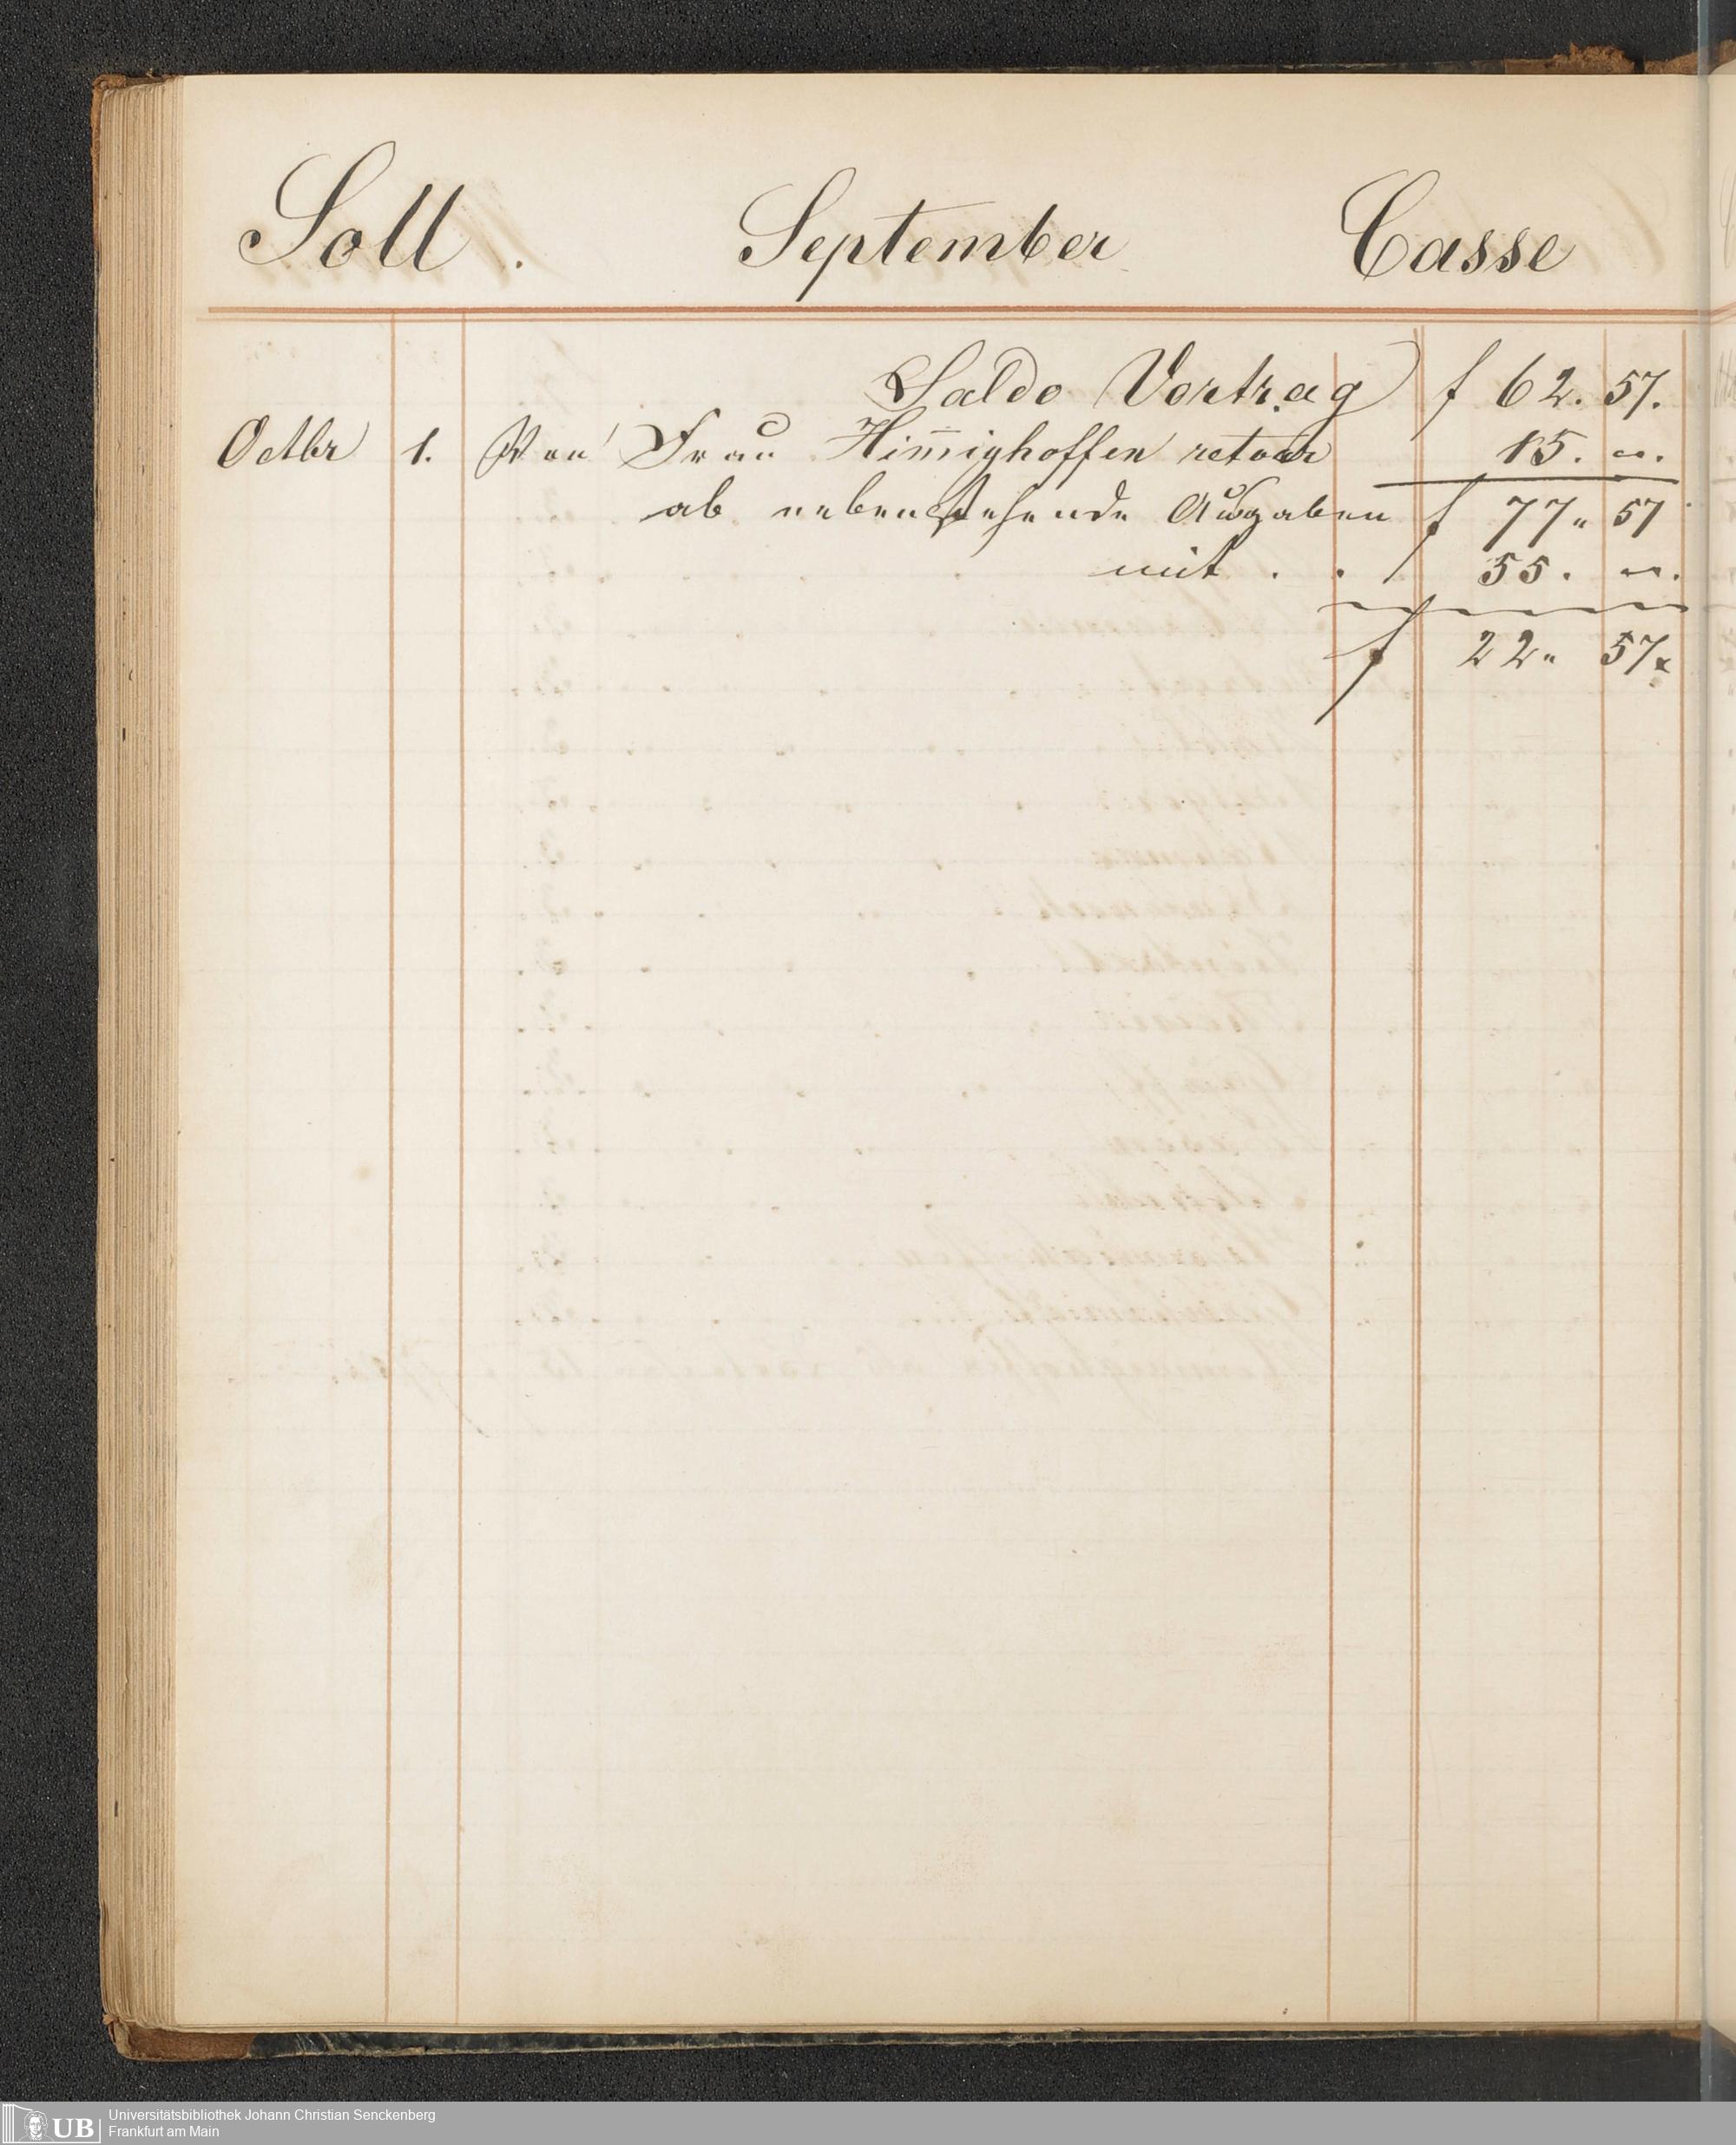 Soll. September Casse
Saldo Vortrag f 62. 57.
Octbr 1. Von Frau Him̅ighoffen retour 15. „.
ab nebenstehende Ausgaben f 77 „ 57
mit . . 55. „.
f 22 „ 57x
Universitätsbibliothek Johann Christian Senckenberg
Frankfurt am Main
UB